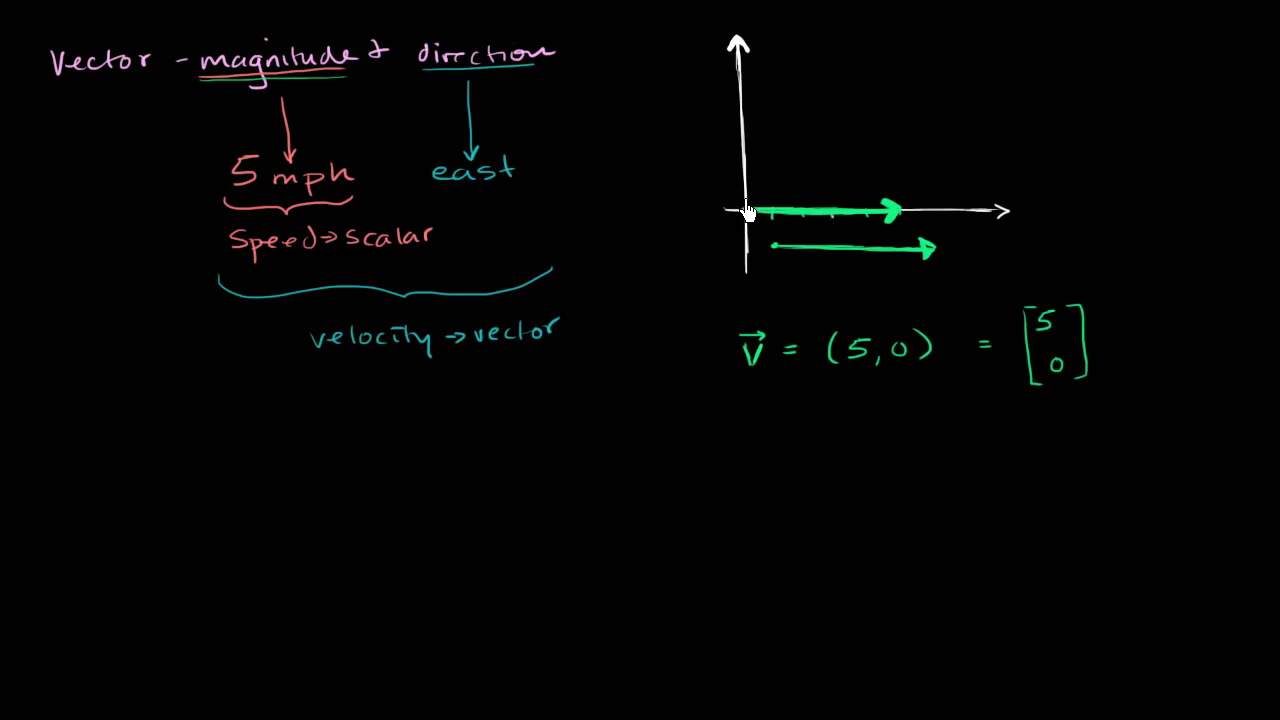 Vector - magnitude & direction
5 mph east
Speed → scalar
velocity → vector
v⃗ = (5,0) = [5
0]